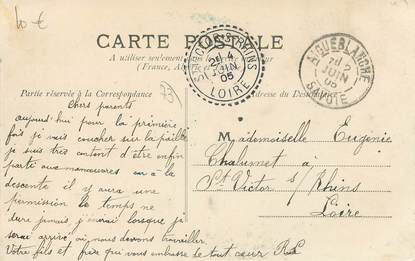 10 €
CARTE POSTALE
A utiliser seulement
(France, A
Partie réservée à la Correspondance
Adresse du Dest
73
ST VICTOR-S-RHINS
21 4
JUIN
05
LOIRE
AIGUEBLANCHE
JUIN
05
SAVOIE
Chers parents
aujourd'hui pour la première
fois je vais coucher sur la paille
je suis très content d'être enfin
parti aux manoeuvres car à la
descente il y aura une
permission le temps ne
dure jamais j'aurai lorsque je
serai arrivé, où nous devons travailler.
Votre fils et frère qui vous embrasse de tout coeur
Mademoiselle Eugénie
Chalumet à
St Victor s/ Rhins
Loire